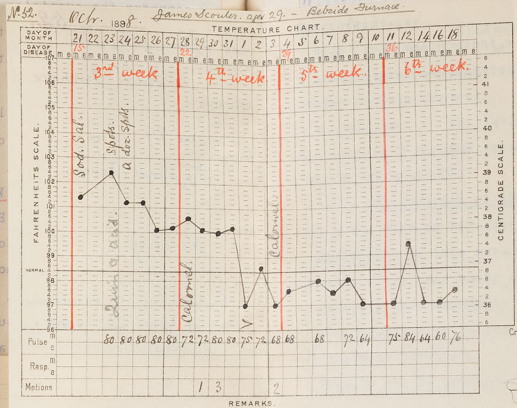 No. 52. Octr. 1898. James Scouler. age 29. — Bebside Furnace.
TEMPERATURE CHART.
DAY OF MONTH 21 22 23 24 25 26 27 28 29 30 31 1 2 3 4 5 6 7 8 9 10 11 12 14 16 18
DAY OF DISEASE 15. 22. 29. 36.
m e m e m e m e m e m e m e m e m e m e m e m e m e m e m e m e m e m e m e m e m e m e m e m e m e m e
3rd week 4th week 5th week 6th week.
FAHRENHEITS SCALE.
107
106
105
104
103
102
101
100
99
98
97
96
NORMAL
CENTIGRADE SCALE.
41
40
39
38
37
36
Sod. Sal.
Spots.
a doz. Spots.
Calomel.
Calomel
V
Pulse m e 80 80 80 80 80 72 72 80 80 75 72 68 68 68 72 64 75 84 64 60 76
Resp. m e
Motions 1 3 2
REMARKS.